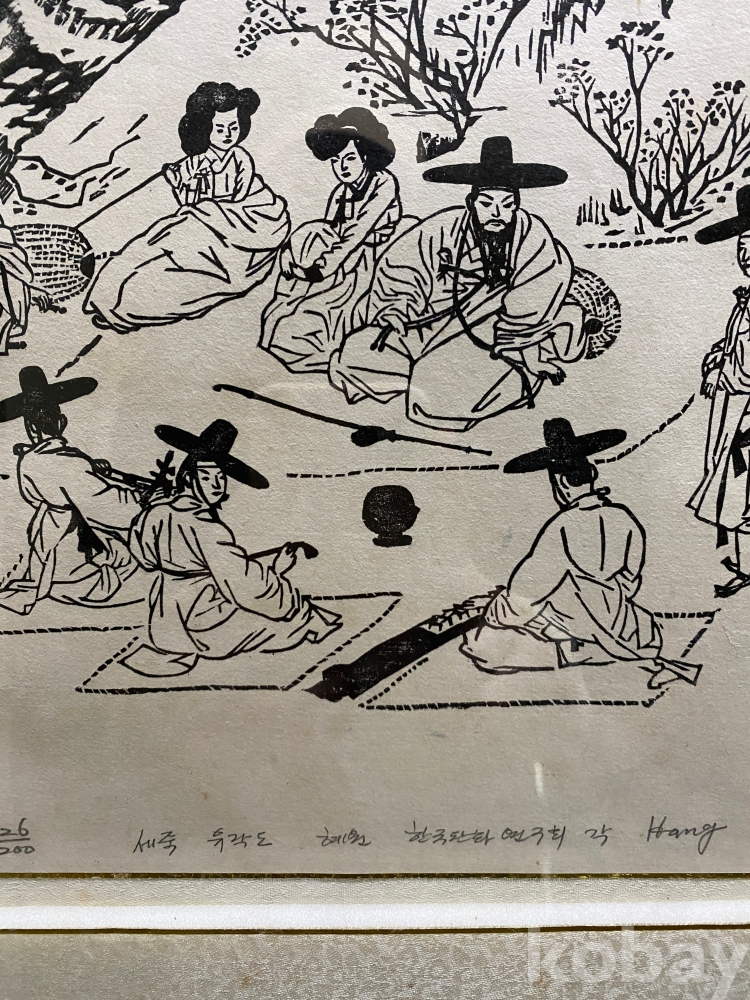 26
200
세죽 혜원 한국판화 연구회 각 Hang
kobay